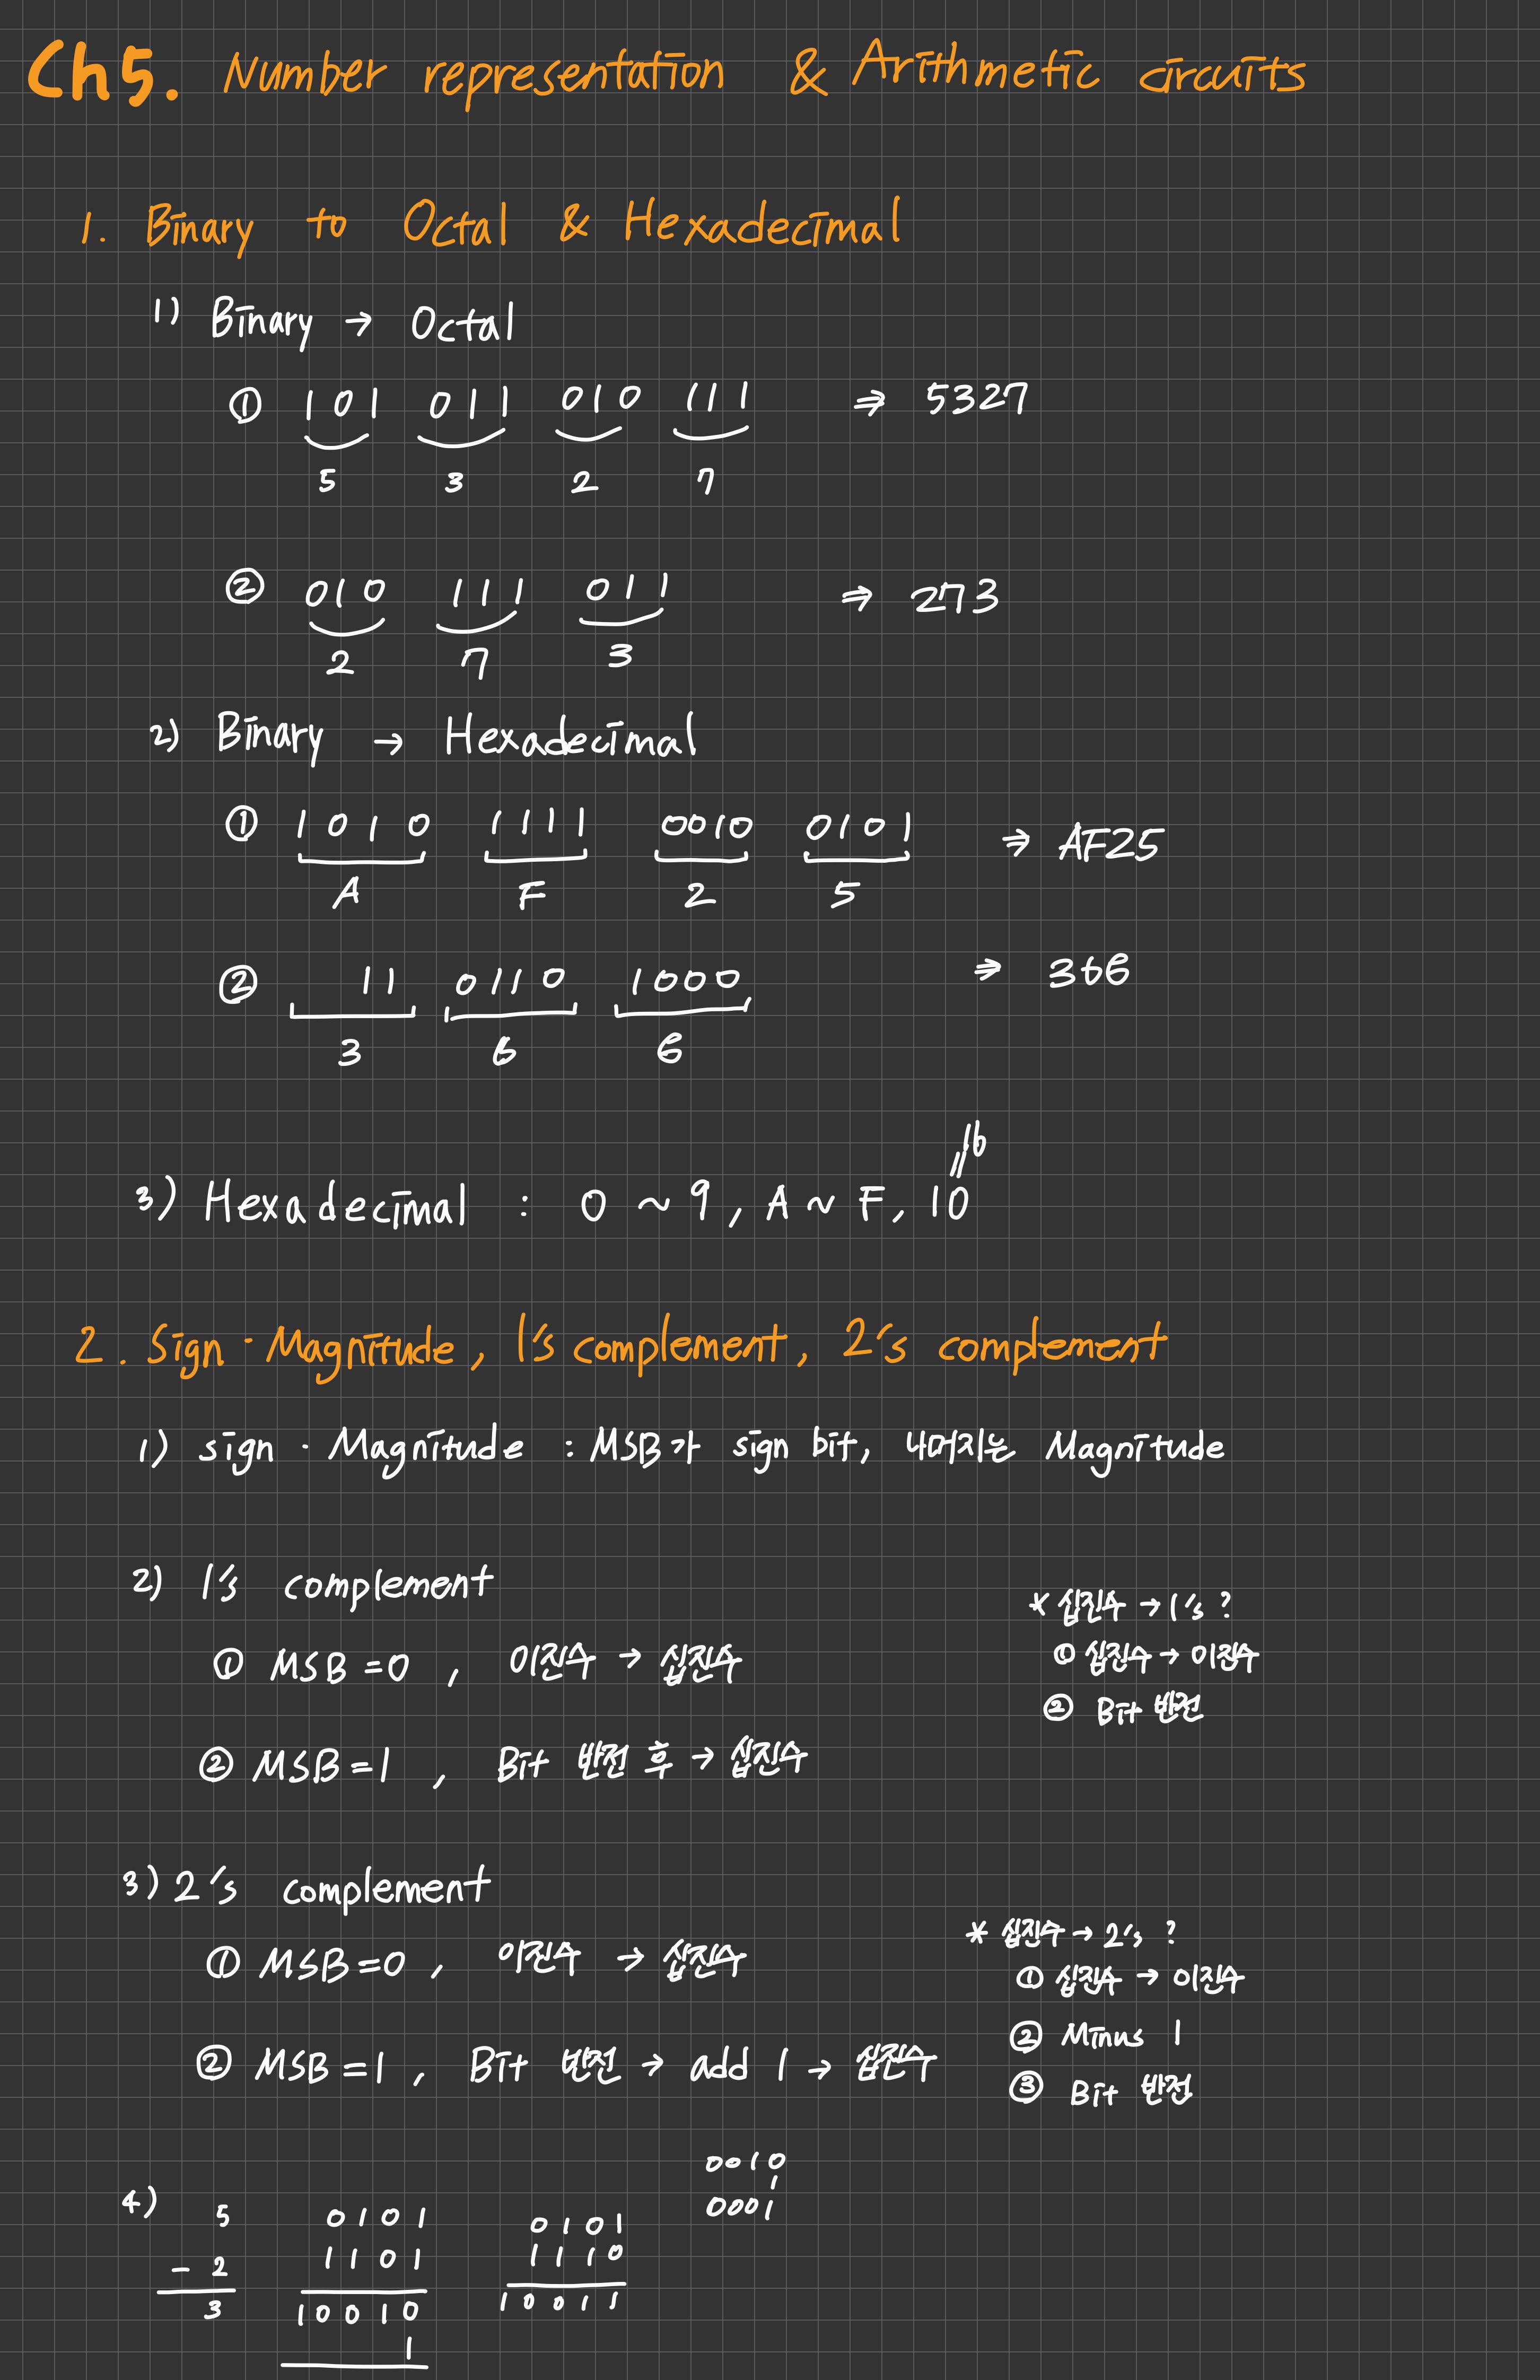 Ch5. Number representation & Arithmetic circuits
1. Binary to Octal & Hexadecimal
1) Binary → Octal
① 101 011 010 111 ⇒ 5327
5 3 2 7
② 010 111 011 ⇒ 273
2 7 3
2) Binary → Hexadecimal
① 1010 1111 0010 0101 ⇒ AF25
A F 2 5
② 11 0110 1000 ⇒ 366
3 6 6
16
//
3) Hexadecimal : 0 ~ 9, A ~ F, 10
2. Sign - Magnitude, 1's complement, 2's complement
1) sign - Magnitude : MSB가 sign bit, 나머지는 Magnitude
2) 1's complement
① MSB=0, 이진수 → 십진수
② MSB=1, Bit 반전 후 → 십진수
* 십진수 → 1's ?
① 십진수 → 이진수
② Bit 반전
3) 2's complement
① MSB=0, 이진수 → 십진수
② MSB=1, Bit 반전 → add 1 → 십진수
* 십진수 → 2's ?
① 십진수 → 이진수
② Minus 1
③ Bit 반전
4)
5
- 2
3
0101
1101
10010
1
0101
1110
10011
0010
1
0001